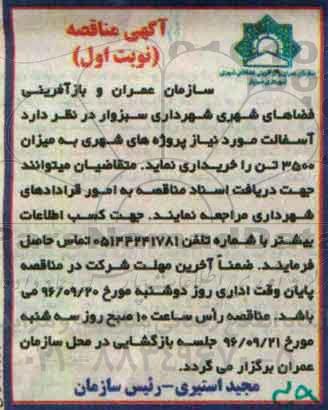 آگهی مناقصه
(نوبت اول)
سازمان عمران و بازآفرینی
فضاهای شهری شهرداری سبزوار در نظر دارد
آسفالت مورد نیاز پروژه های شهری به میزان
۳۵۰۰ تن را خریداری نماید. متقاضیان میتوانند
جهت دریافت اسناد مناقصه به امور قرادادهای
شهرداری مراجعه نمایند. جهت کسب اطلاعات
بیشتر با شماره تلفن ۰۵۱۴۴۲۴۱۷۸۱ تماس حاصل
فرمایند. ضمناً آخرین مهلت شرکت در مناقصه
پایان وقت اداری روز دوشنبه مورخ ۹۶/۰۹/۲۰ می
باشد. مناقصه رأس ساعت ۱۰ صبح روز سه شنبه
مورخ ۹۶/۰۹/۲۱ جلسه بازگشایی در محل سازمان
عمران برگزار می گردد.
مجید استیری-رئیس سازمان